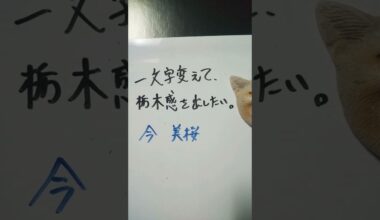 一文字変えて、
栃木感を出したい。
今 美桜
今